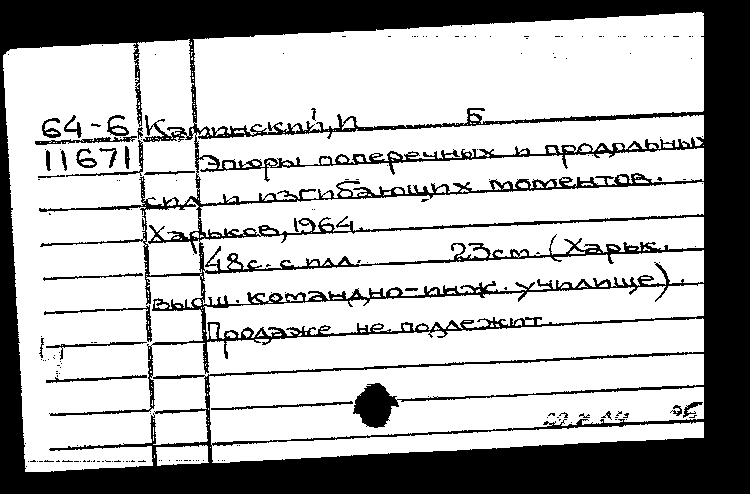 64-6 Каминский, И Б
11671 Эпюры поперечных и продольных
сил и изгибающих моментов.
Харьков, 1964.
48с. с илл. 23см. (Харьк.
высш. командно-инж. училище).
Продаже не подлежит.